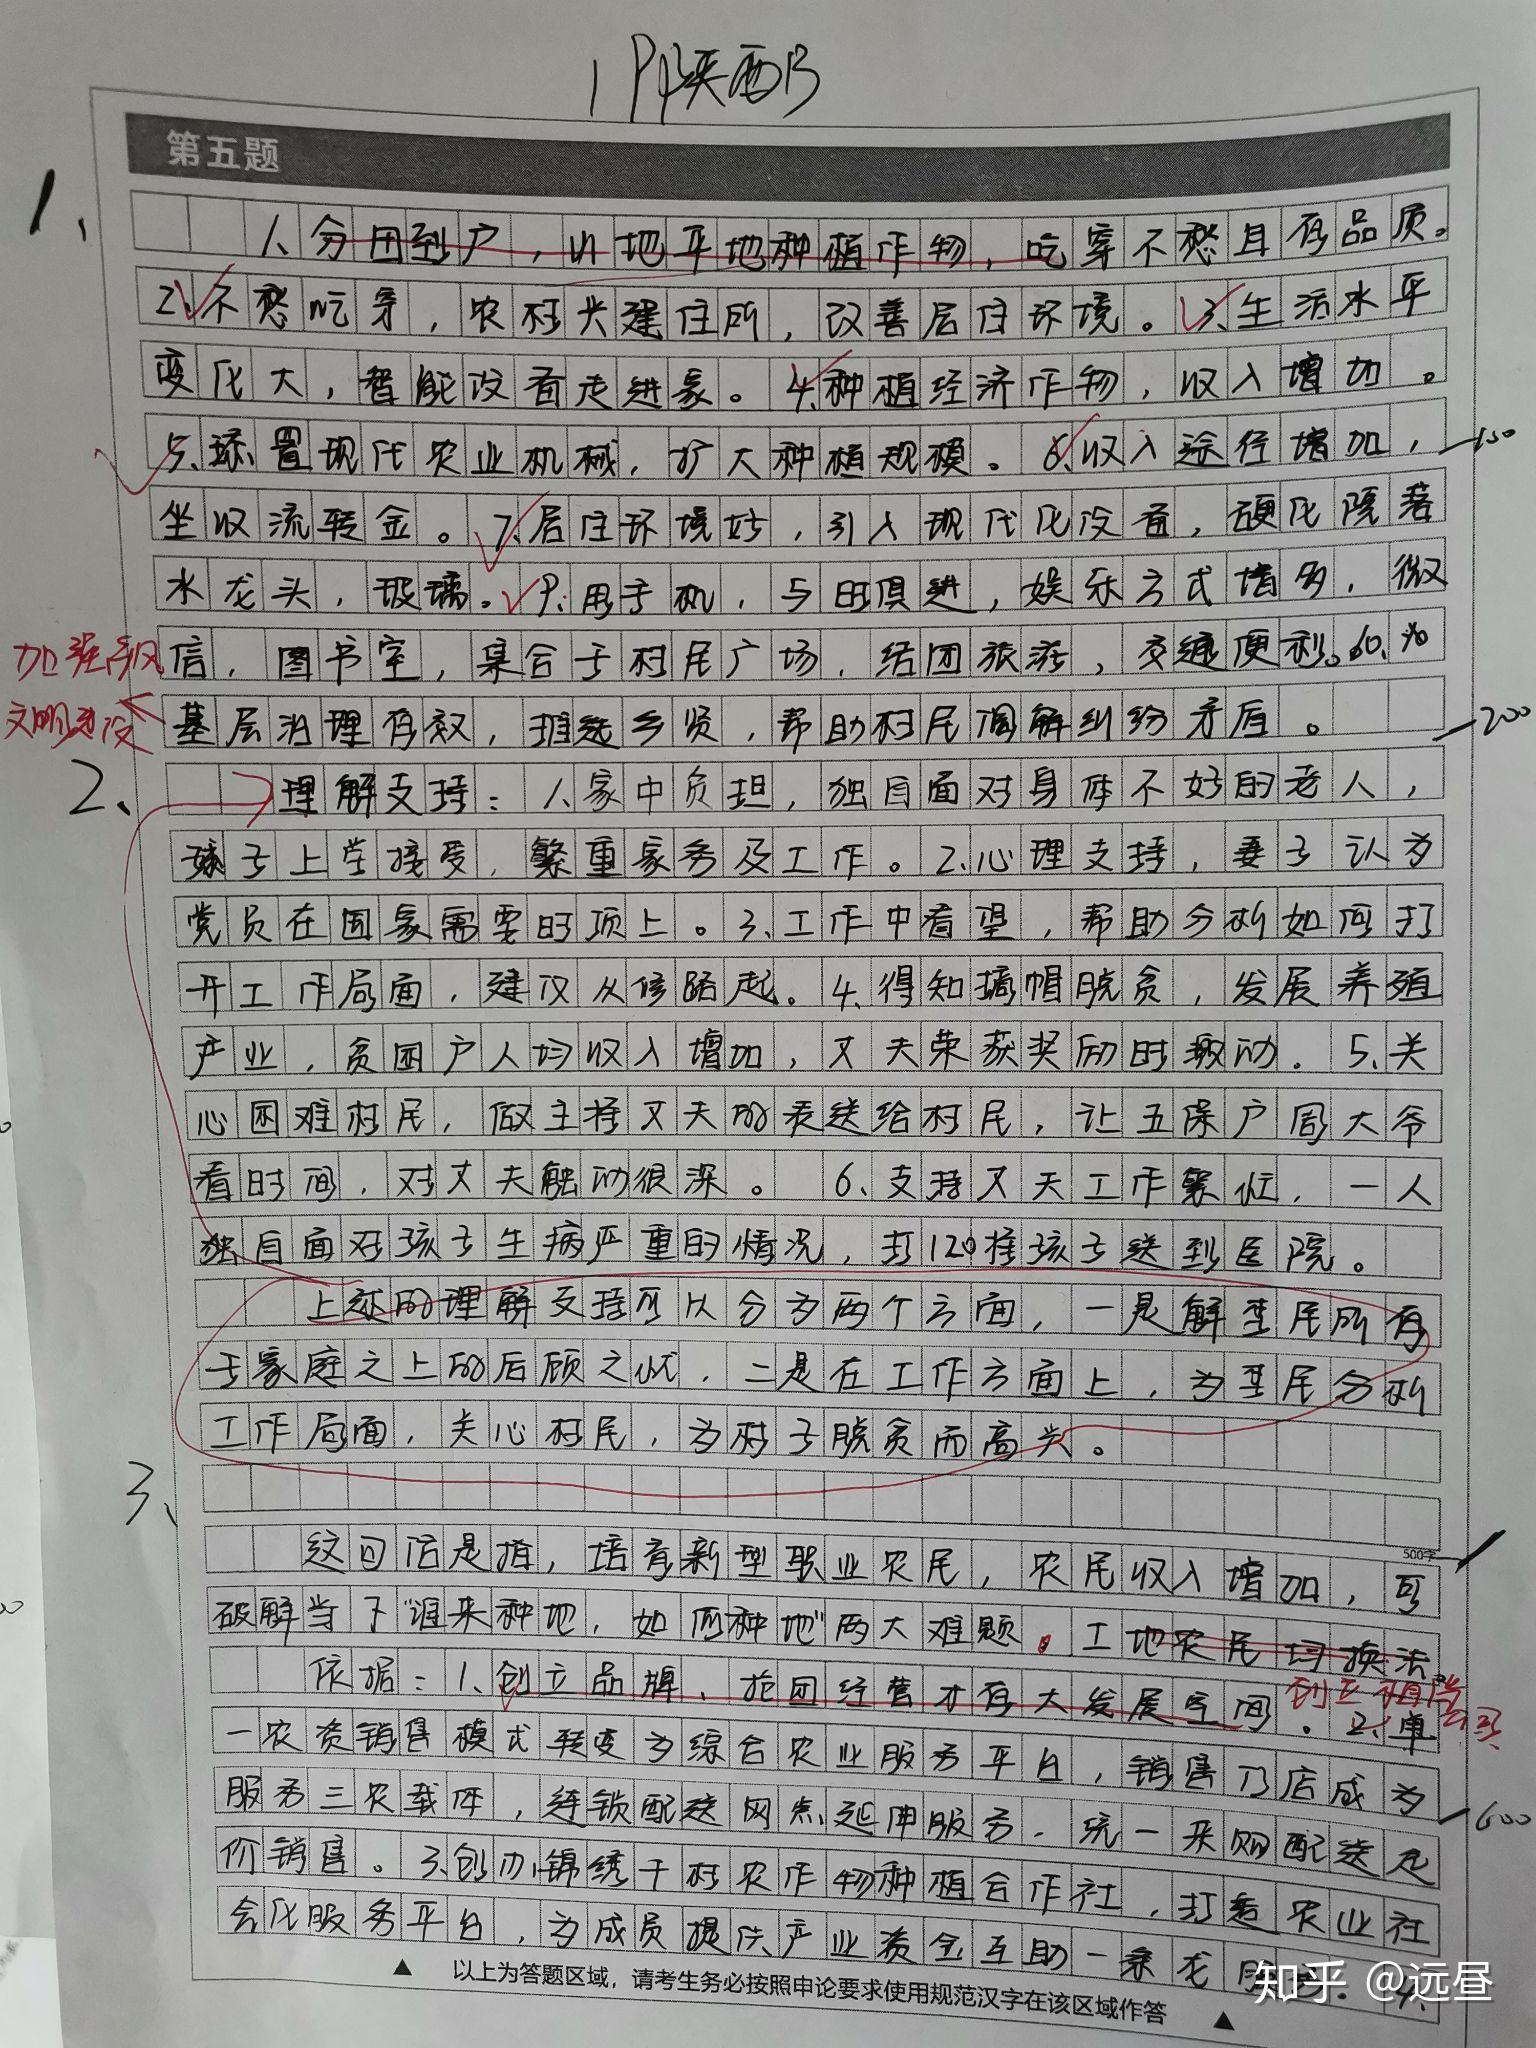 陕西B
第五题
1、
1、分田到户，山地平地种植作物，吃穿不愁且有品质。
2、不愁吃穿，农村兴建住所，改善居住环境。3、生活水平
变化大，智能设备走进家。4、种植经济作物，收入增加。
5、添置现代农业机械，扩大种植规模。6、收入途径增加，
坐收流转金。7、居住环境好，引入现代化设备，硬化院落
水龙头，玻璃。9、用手机，与时俱进，娱乐方式增多，微
信，图书室，集合于村民广场，结团旅游，交通便利。10、
基层治理有效，推选乡贤，帮助村民调解纠纷矛盾。
加强
文明建设
200
2、
理解支持：1、家中负担，独自面对身体不好的老人，
孩子上学接受，繁重家务及工作。2、心理支持，妻子认为
党员在国家需要时顶上。3、工作中看望，帮助分析如何打
开工作局面，建议从修路起。4、得知摘帽脱贫，发展养殖
产业，贫困户人均收入增加，丈夫荣获奖励时激动。5、关
心困难村民，做主将丈夫的表送给村民，让五保户周大爷
看时间，对丈夫触动很深。6、支持丈夫工作繁忙，一人
独自面对孩子生病严重的情况，打120将孩子送到医院。
上述的理解支持可以分为两个方面，一是解李民所有
于家庭之上的后顾之忧，二是在工作方面上，为李民分析
工作局面，关心村民，为村子脱贫而高兴。
3、
500字
这句话是指，培育新型职业农民，农民收入增加，可
破解当下“谁来种地，如何种地”两大难题。工地农民均换活
依据：1、创立品牌、抱团经营才有大发展空间。2、单
一农资销售模式转变为综合农业服务平台，销售门店成为
服务三农载体，连锁配送网点延伸服务，统一采购配送定
600
价销售。3、创办锦绣千村农作物种植合作社，打造农业社
会化服务平台，为成员提供产业资金互助一条龙服务。4、
▲ 以上为答题区域，请考生务必按照申论要求使用规范汉字在该区域作答 ▲
知乎 @远昼